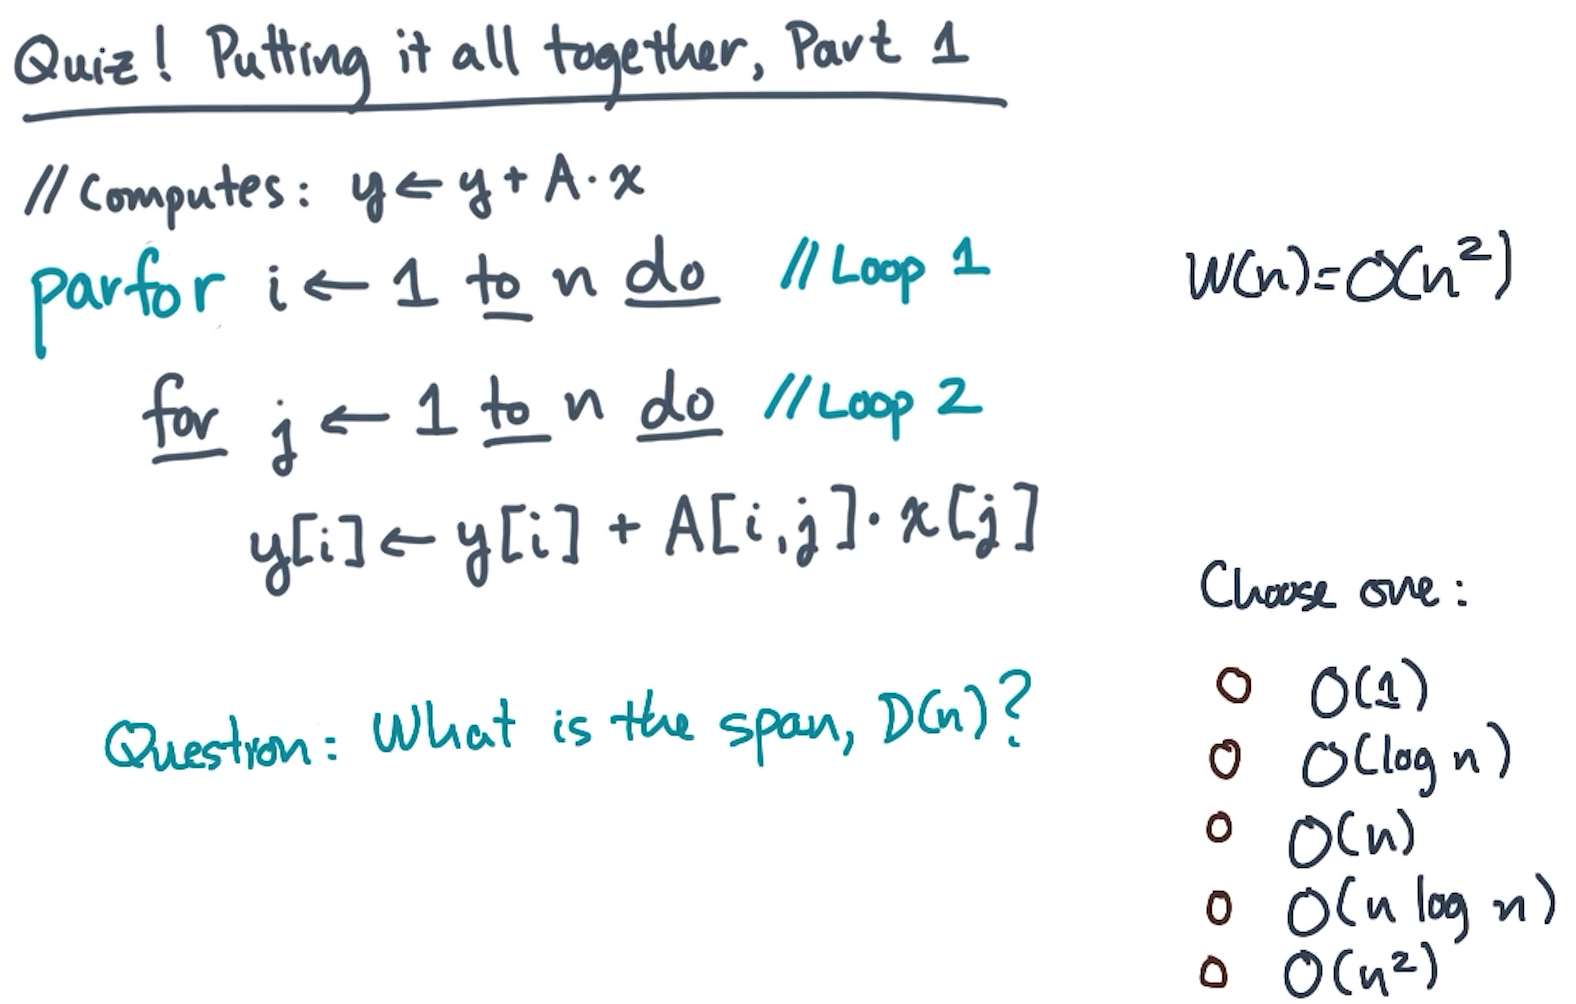 Quiz! Putting it all together, Part 1
// Computes: y ← y + A · x
parfor i ← 1 to n do // Loop 1
W(n)=O(n²)
for j ← 1 to n do // Loop 2
y[i] ← y[i] + A[i,j] · x[j]
Question: What is the span, D(n)?
Choose one:
O(1)
O(log n)
O(n)
O(n log n)
O(n²)